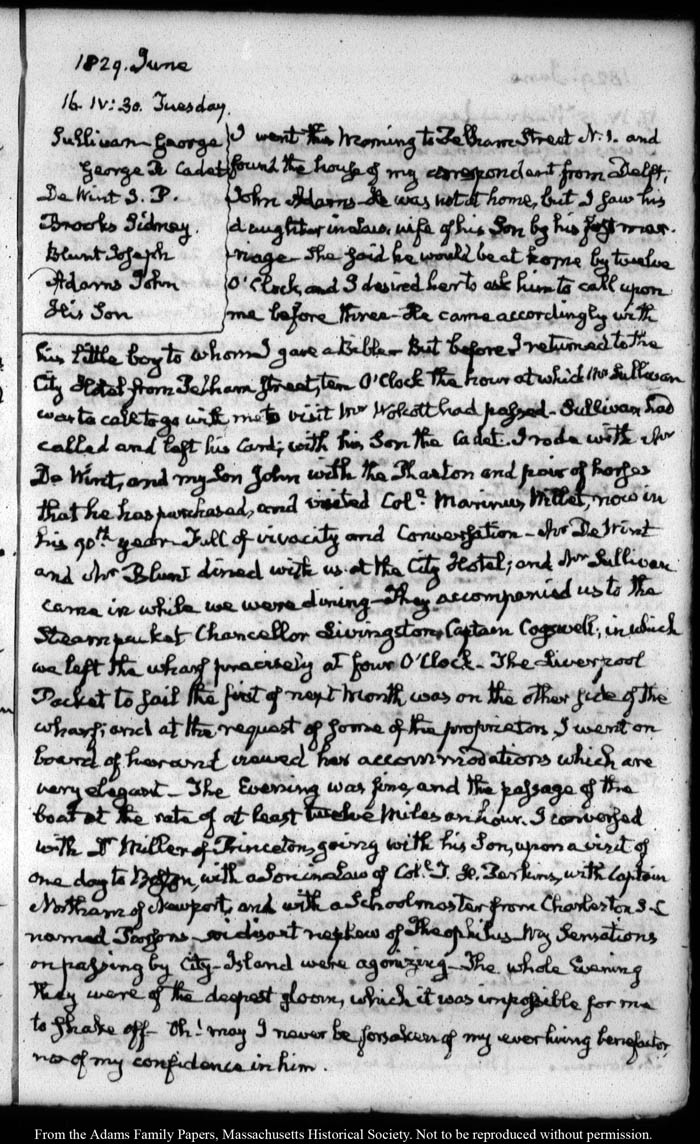 1829. June
16. IV: 30. Tuesday.
Sullivan George
George R Cadet
De Wint J. P.
Brooks Sidney.
Blunt Joseph
Adams John
His Son
I went this Morning to Pelham Street N. 1. and
found the house of my correspondent from Delft,
John Adams. He was not at home, but I saw his
daughter in law, wife of his Son by his first mar-
riage. She said he would be at home by twelve
O'Clock, and I desired her to ask him to call upon
me before three. He came accordingly with
his little boy to whom I gave a Bible. But before I returned to the
City Hotel from Pelham Street, ten O'Clock the hour at which Mr Sullivan
was to call to go with me to visit Mr Wolcott had passed. Sullivan had
called and left his Card, with his Son the Cadet. I rode with Mr
De Wint, and my Son John with the Phaeton and pair of horses
that he has purchased, and visited Coll. Marinus Willet, now in
his 90th year. Full of vivacity and Conversation. Mr De Wint
and Mr Blunt dined with us at the City Hotel; and Mr Sullivan
came in while we were dining. They accompanied us to the
Steam packet Chancellor Livingston, Captain Cogswell; in which
we left the wharf precisely at four O'Clock. The Liverpool
Packet to sail the first of next Month was on the other side of the
wharf; and at the request of some of the proprietors I went on
board of her and viewed her accommodations which are
very elegant. The Evening was fine, and the passage of the
boat at the rate of at least twelve Miles an hour. I conversed
with Dr Miller of Princeton, going with his Son, upon a visit of
one day to Boston, with a Son in law of Coll. T. H. Perkins, with Captain
of Newport, and with a Schoolmaster from Charleston S-C
named Parsons soi disant nephew of Theophilus. My Sensations
on passing by City-Island were agonizing. The whole Evening
they were of the deepest gloom, which it was impossible for me
to shake off. Oh! may I never be forsaken of my ever living benefactor,
nor of my confidence in him.
From the Adams Family Papers, Massachusetts Historical Society. Not to be reproduced without permission.